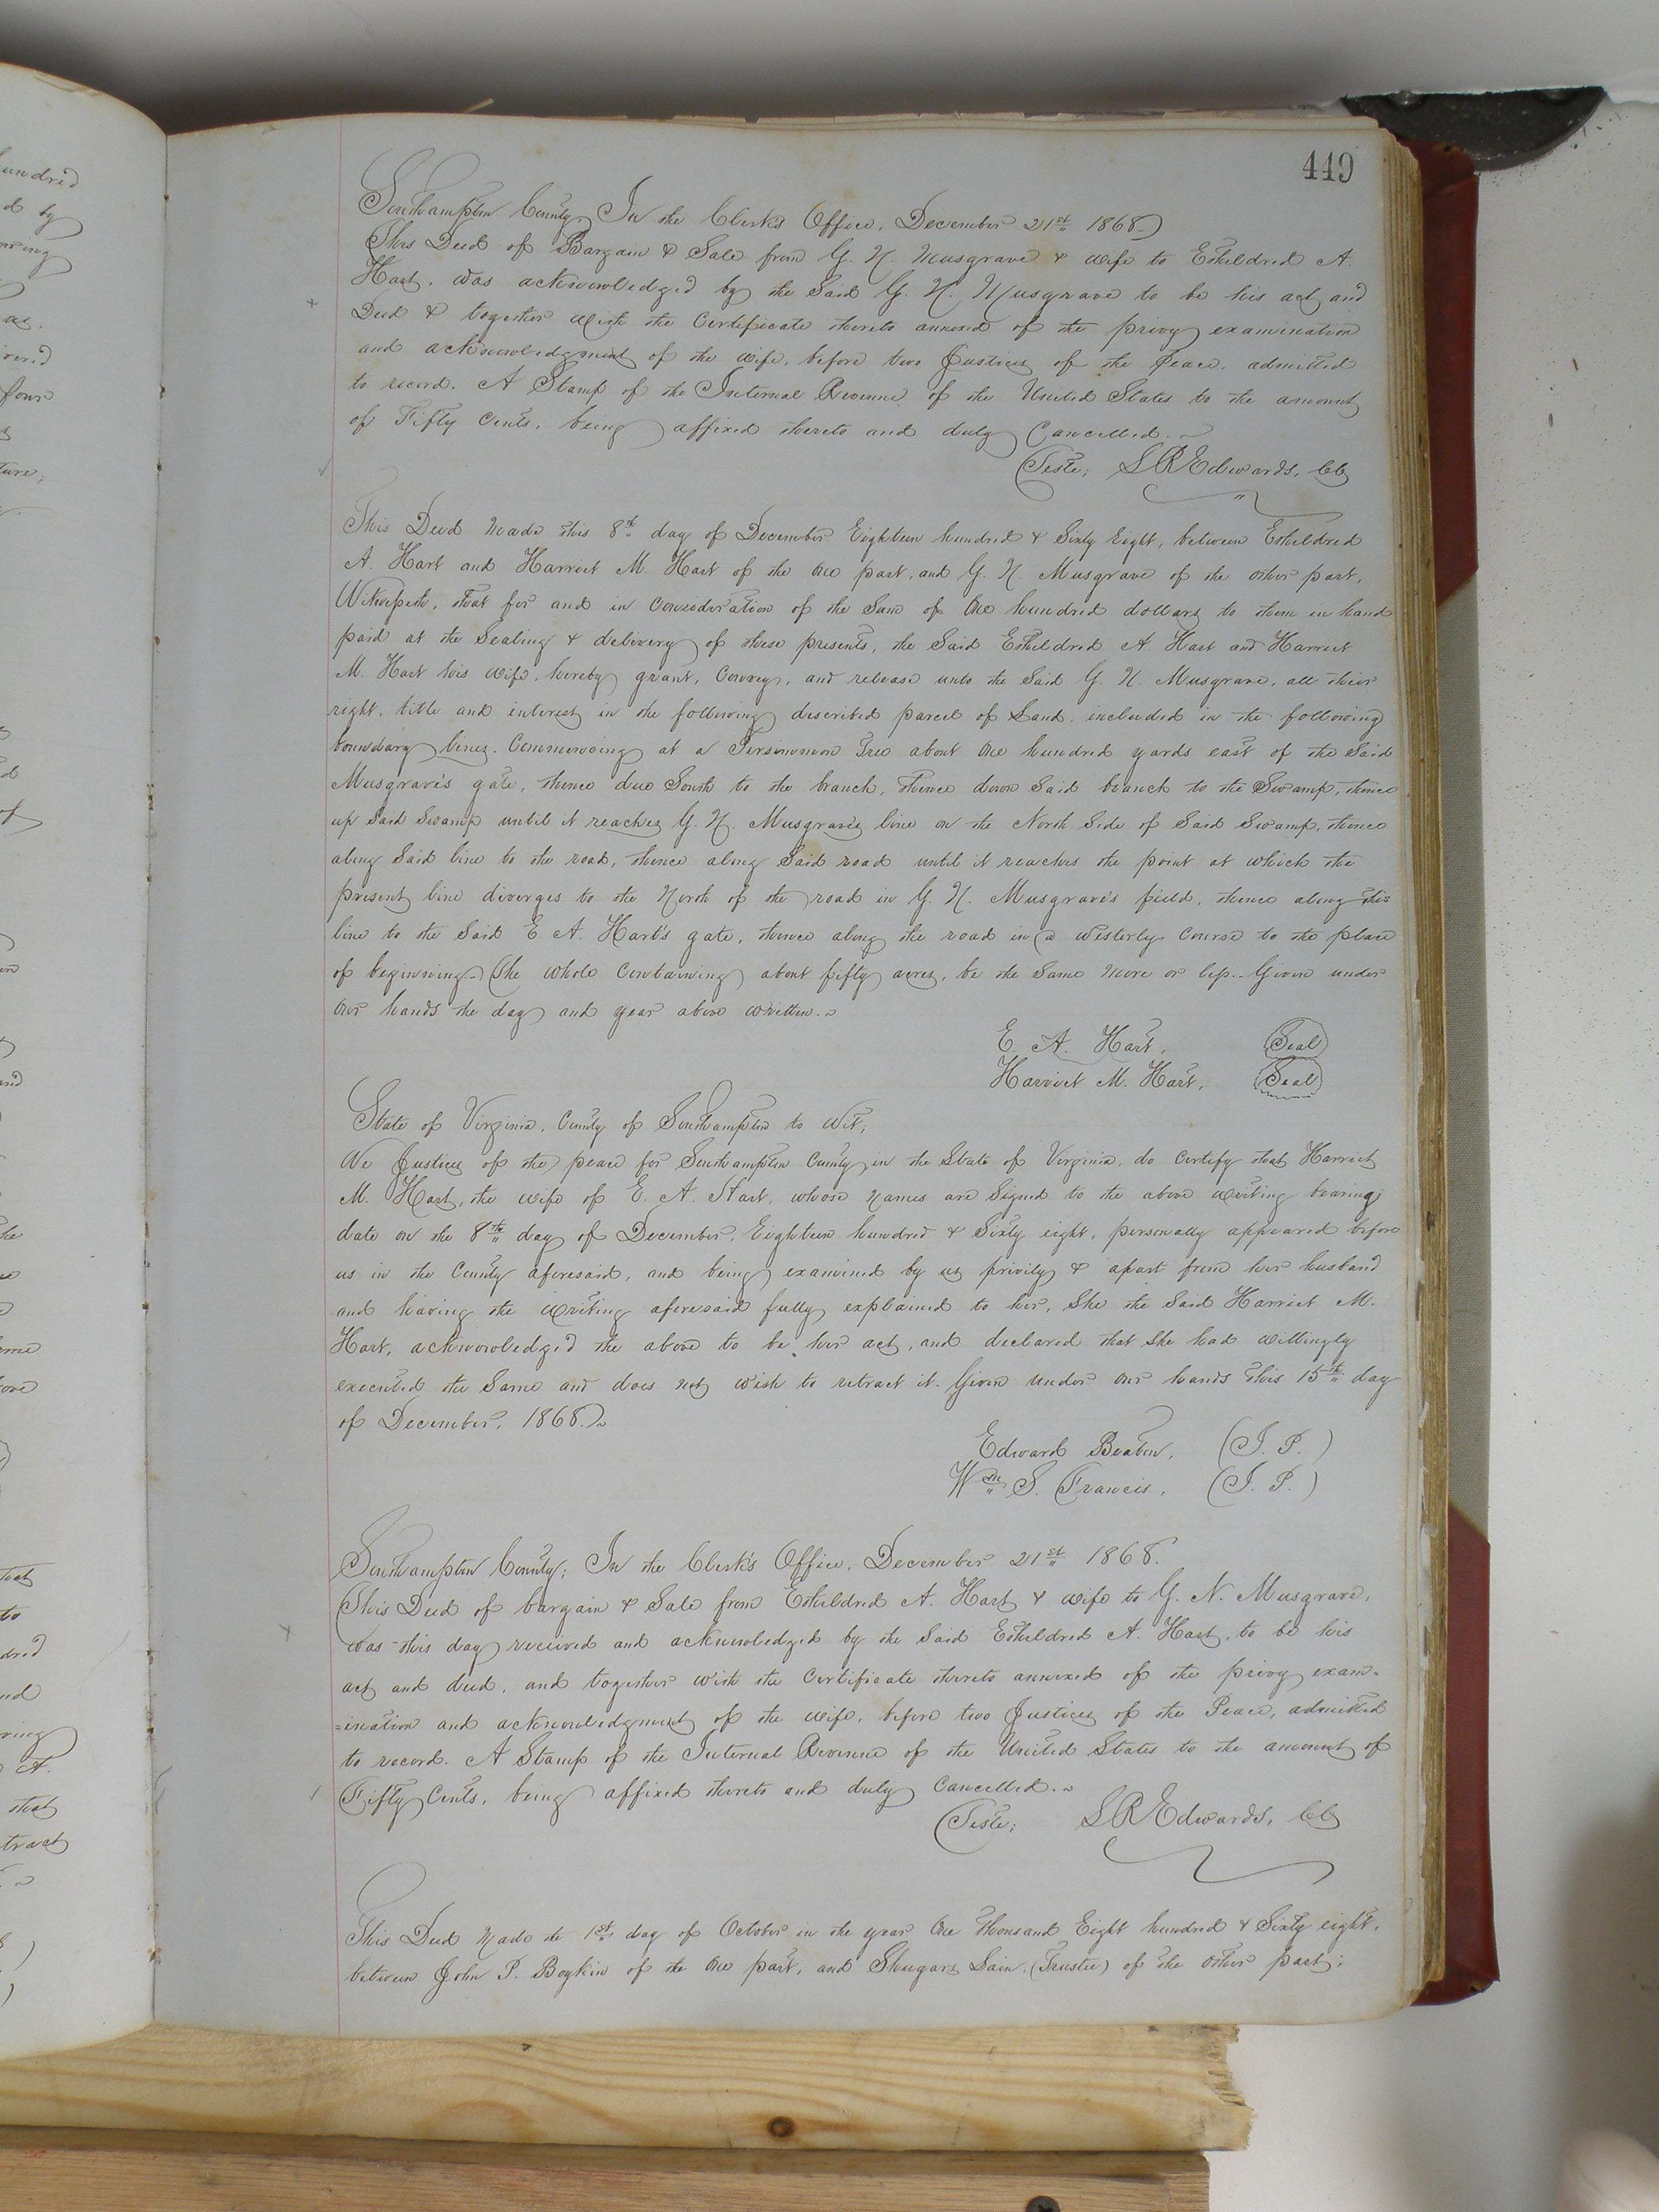 449
Southampton County, In the Clerk's Office, December 21st 1868.
This Deed of Bargain & Sale from G. N. Musgrave & wife to Etheldred A.
Hart, was acknowledged by the Said G. N. Musgrave to be his act and
Deed & together with the Certificate thereto annexed of the privy examination
and acknowledgment of the wife, before two Justices of the Peace, admitted
to record. A Stamp of the Internal Revenue of the United States to the amount
of Fifty Cents, being affixed thereto and duly Cancelled.
Teste; S R Edwards, CC
This Deed made this 8th day of December Eighteen hundred & Sixty Eight, between Etheldred
A. Hart and Harriet M Hart of the one part, and G. N. Musgrave of the other part,
Witnesseth, that for and in Consideration of the Sum of One hundred dollars to them in hand
paid at the Sealing & delivery of these presents, the Said Etheldred A. Hart and Harriet
M. Hart his wife, hereby grant, Convey, and release unto the Said G. N. Musgrave, all their
right, title and interest in the following described parcel of Land, included in the following
boundary lines. Commencing at a Persimmon Tree about One hundred yards east of the Said
Musgrave's gate, thence due South to the branch, thence down Said branch to the Swamp, thence
up Said Swamp until it reaches G. N. Musgrave's line on the North Side of Said Swamp, thence
along Said line to the road, thence along Said road until it reaches the point at which the
present line diverges to the North of the road in G. N. Musgrave's field, thence along this
line to the Said E. A. Hart's gate, thence along the road in a Westerly Course to the place
of beginning. The whole Containing about fifty acres, be the Same More or less. Given under
Our hands the day and year above written.
E. A. Hart, (Seal)
Harriet M. Hart, (Seal)
State of Virginia, County of Southampton to Wit;
We Justices of the peace for Southampton County in the State of Virginia, do Certify that Harriet
M. Hart, the wife of E. A. Hart, whose Names are Signed to the above writing bearing
date on the 8th day of December, Eighteen hundred & Sixty eight, personally appeared before
us in the County aforesaid, and being examined by us privily & apart from her husband
and having the writing aforesaid fully explained to her, She the Said Harriet M.
Hart, acknowledged the above to be her act, and declared that She had willingly
executed the Same and does not wish to retract it. Given under our hands this 15th day
of December, 1868.
Edward Beaton, (J. P.)
Wm S. Francis, (J. P.)
Southampton County; In the Clerk's Office, December 21st 1868.
This Deed of bargain & Sale from Etheldred A. Hart & wife to G. N. Musgrave,
was this day received and acknowledged by the Said Etheldred A. Hart, to be his
act and deed, and together with the Certificate thereto annexed of the privy exam=
=ination and acknowledgment of the wife, before two Justices of the Peace, admitted
to record. A Stamp of the Internal Revenue of the United States to the amount of
Fifty Cents, being affixed thereto and duly Cancelled.
Teste; S R Edwards, CC
This Deed Made the 1st day of October in the year One Thousand Eight hundred & Sixty eight,
between John P. Boykin of the One part, and Shugars Lain (Trustee) of the other part;